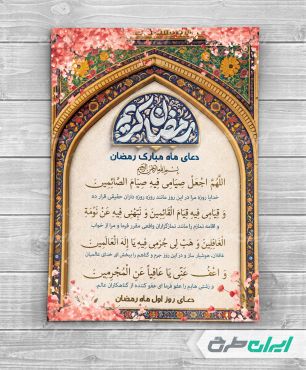 رمضان کریم
دعای ماه مبارک رمضان
بسم الله الرحمن الرحیم
اللَّهُمَّ اجْعَلْ صِيَامِي فِيهِ صِيَامَ الصَّائِمِينَ
خدایا روزه مرا در این روز مانند روزه روزه داران حقیقی قرار ده
وَ قِيَامِي فِيهِ قِيَامَ الْقَائِمِينَ وَ نَبِّهْنِي فِيهِ عَنْ نَوْمَةِ
و اقامه نمازم را مانند نمازگزاران واقعی مقرر فرما و مرا از خواب
الْغَافِلِينَ وَ هَبْ لِي جُرْمِي فِيهِ يَا إِلَهَ الْعَالَمِينَ
غافلان، هوشیار ساز و در این روز جرم و گناهم را ببخش ای خدای عالمیان
وَ اعْفُ عَنِّي يَا عَافِياً عَنِ الْمُجْرِمِينَ
و زشتی هایم را عفو فرما ای عفو کننده از گناهکاران عالم
دعای روز اول ماه رمضان
ایران طرح